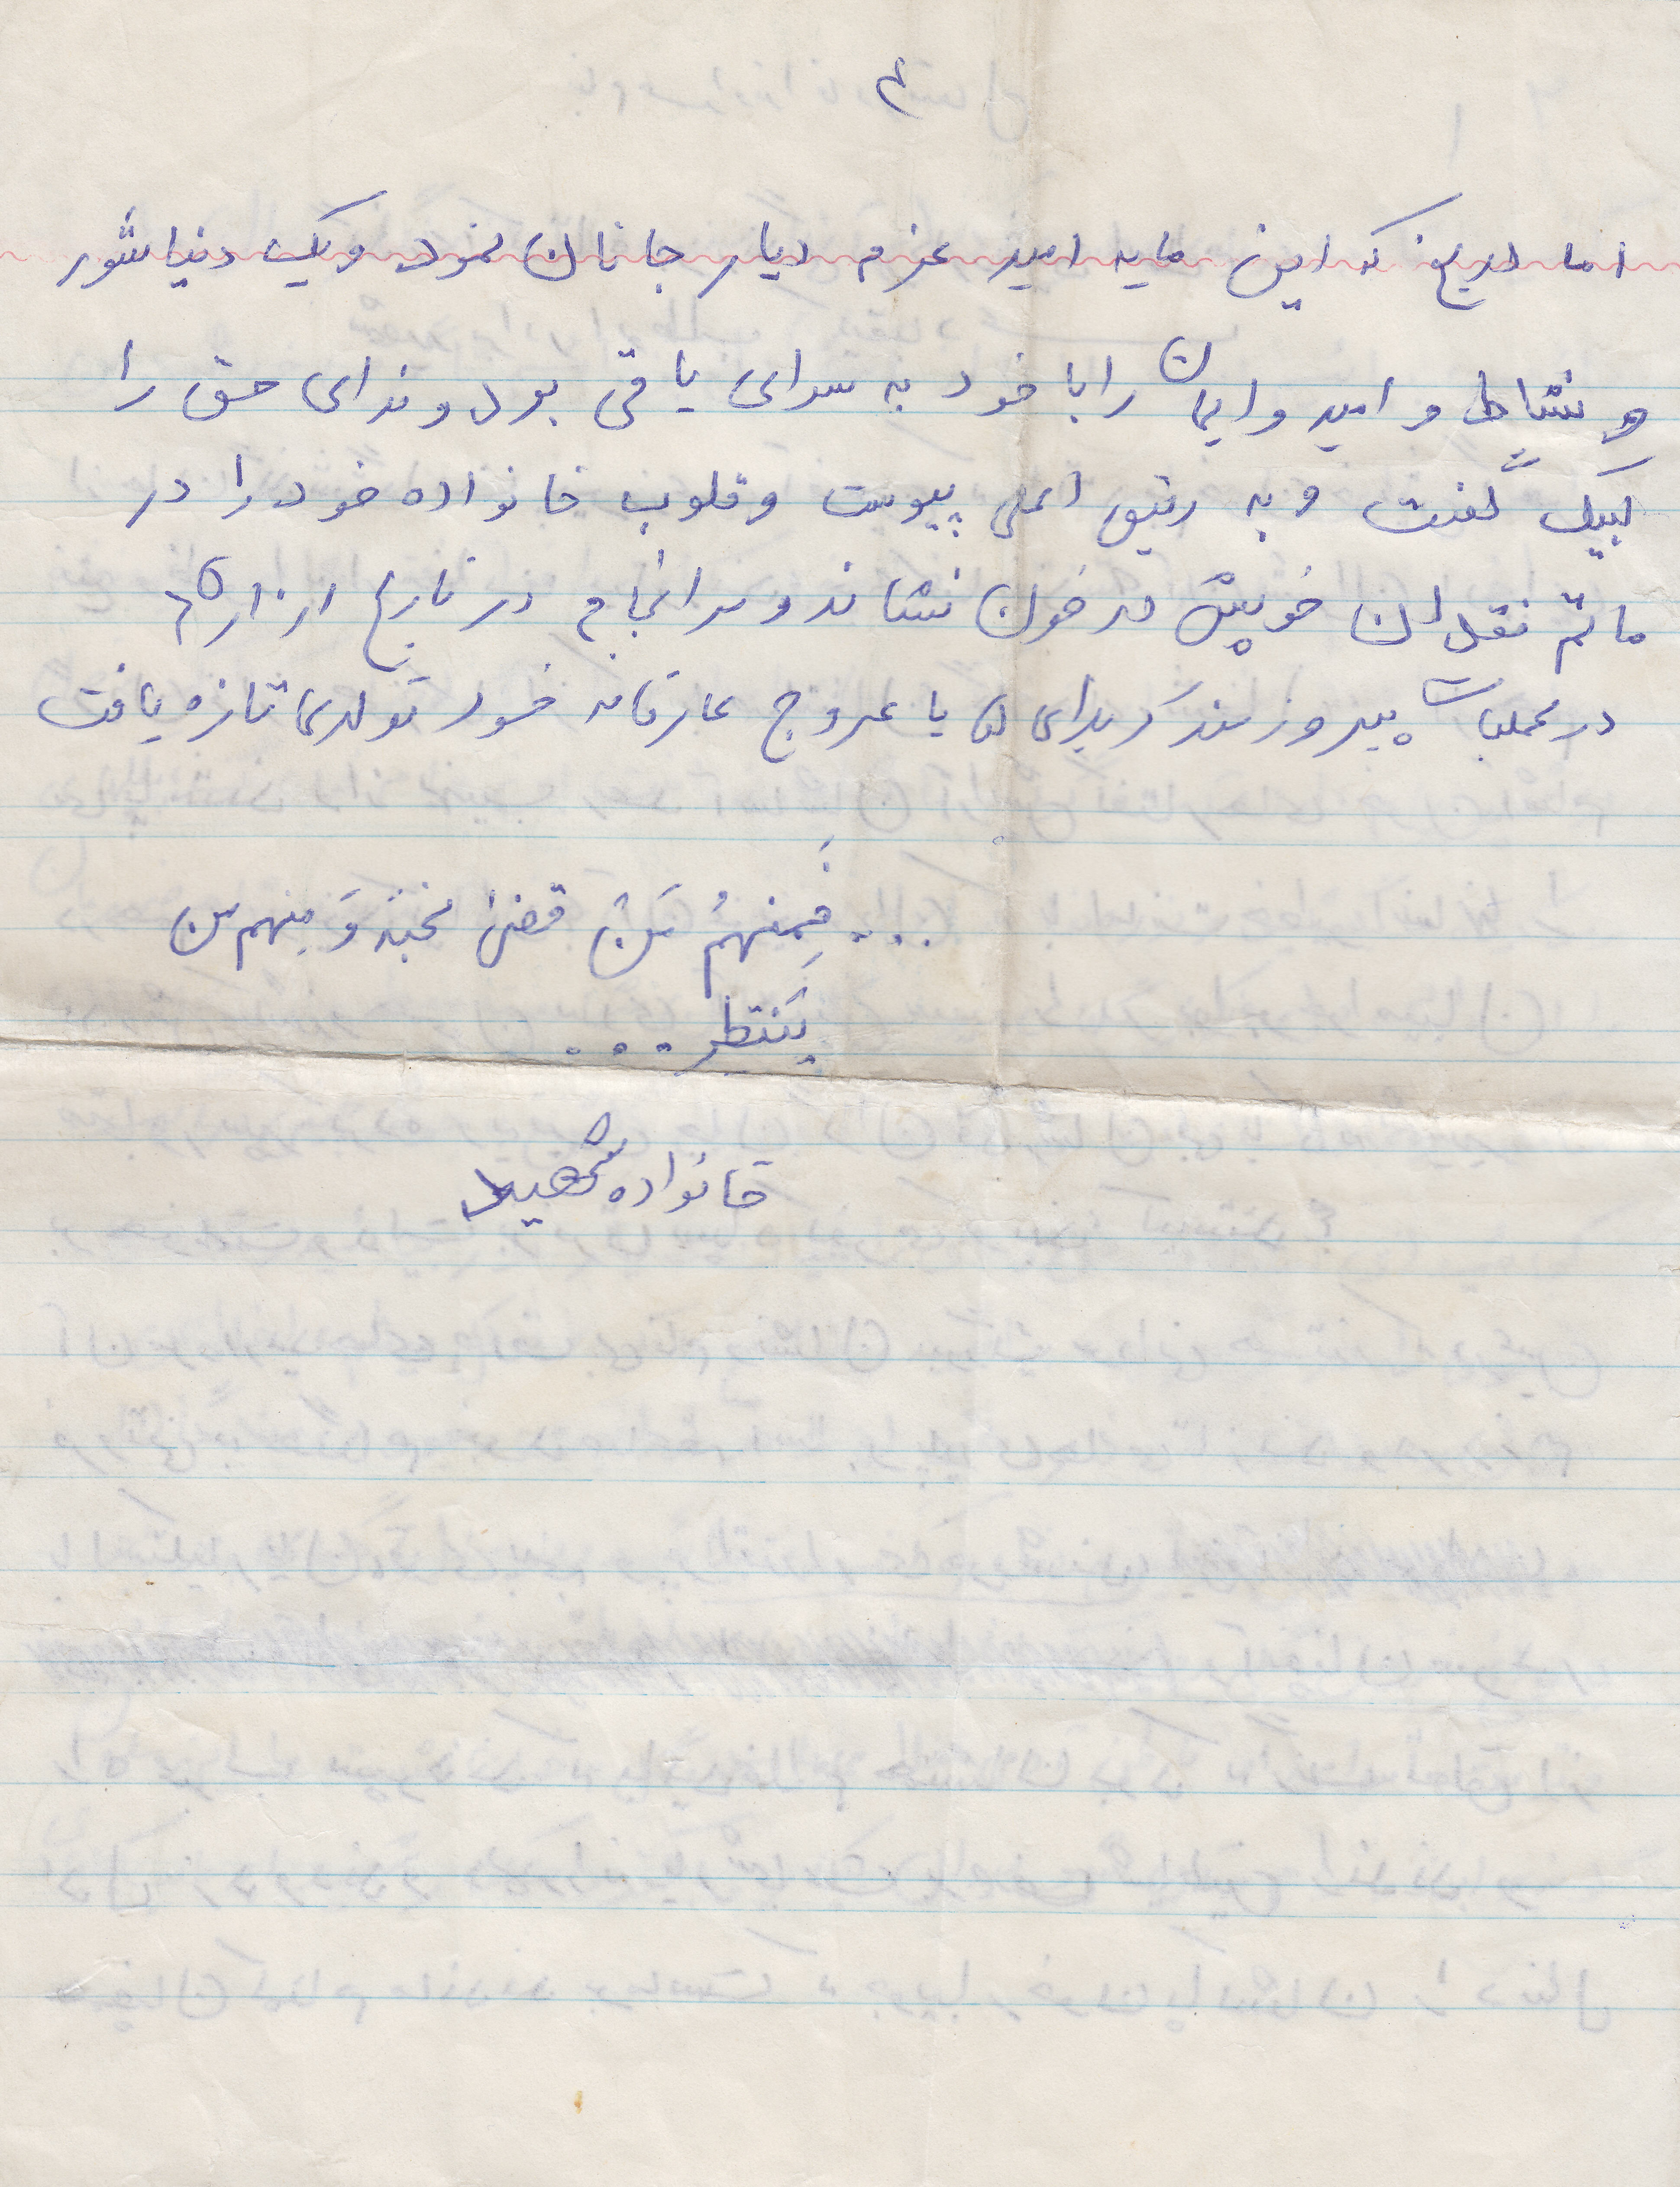 ۴
اما دریغ که این مایه امید عزم دیار جانان نمود و یک دنیا شور
و نشاط و امید و ایمان را با خود به سرای باقی برد و ندای حق را
لبیک گفت و به رفیق اعلی پیوست و قلوب خانواده خود را در
ماتم فقدان خویش در خون نشاند و سرانجام در تاریخ
در عملیات پیروزمند کربلای ۵ با عروج عارفانه خود تولدی تازه یافت
... فَمِنهُم مَن قضیٰ نحبَهُ وَ مِنهم من
یَنتظِر ...
خانواده شهید